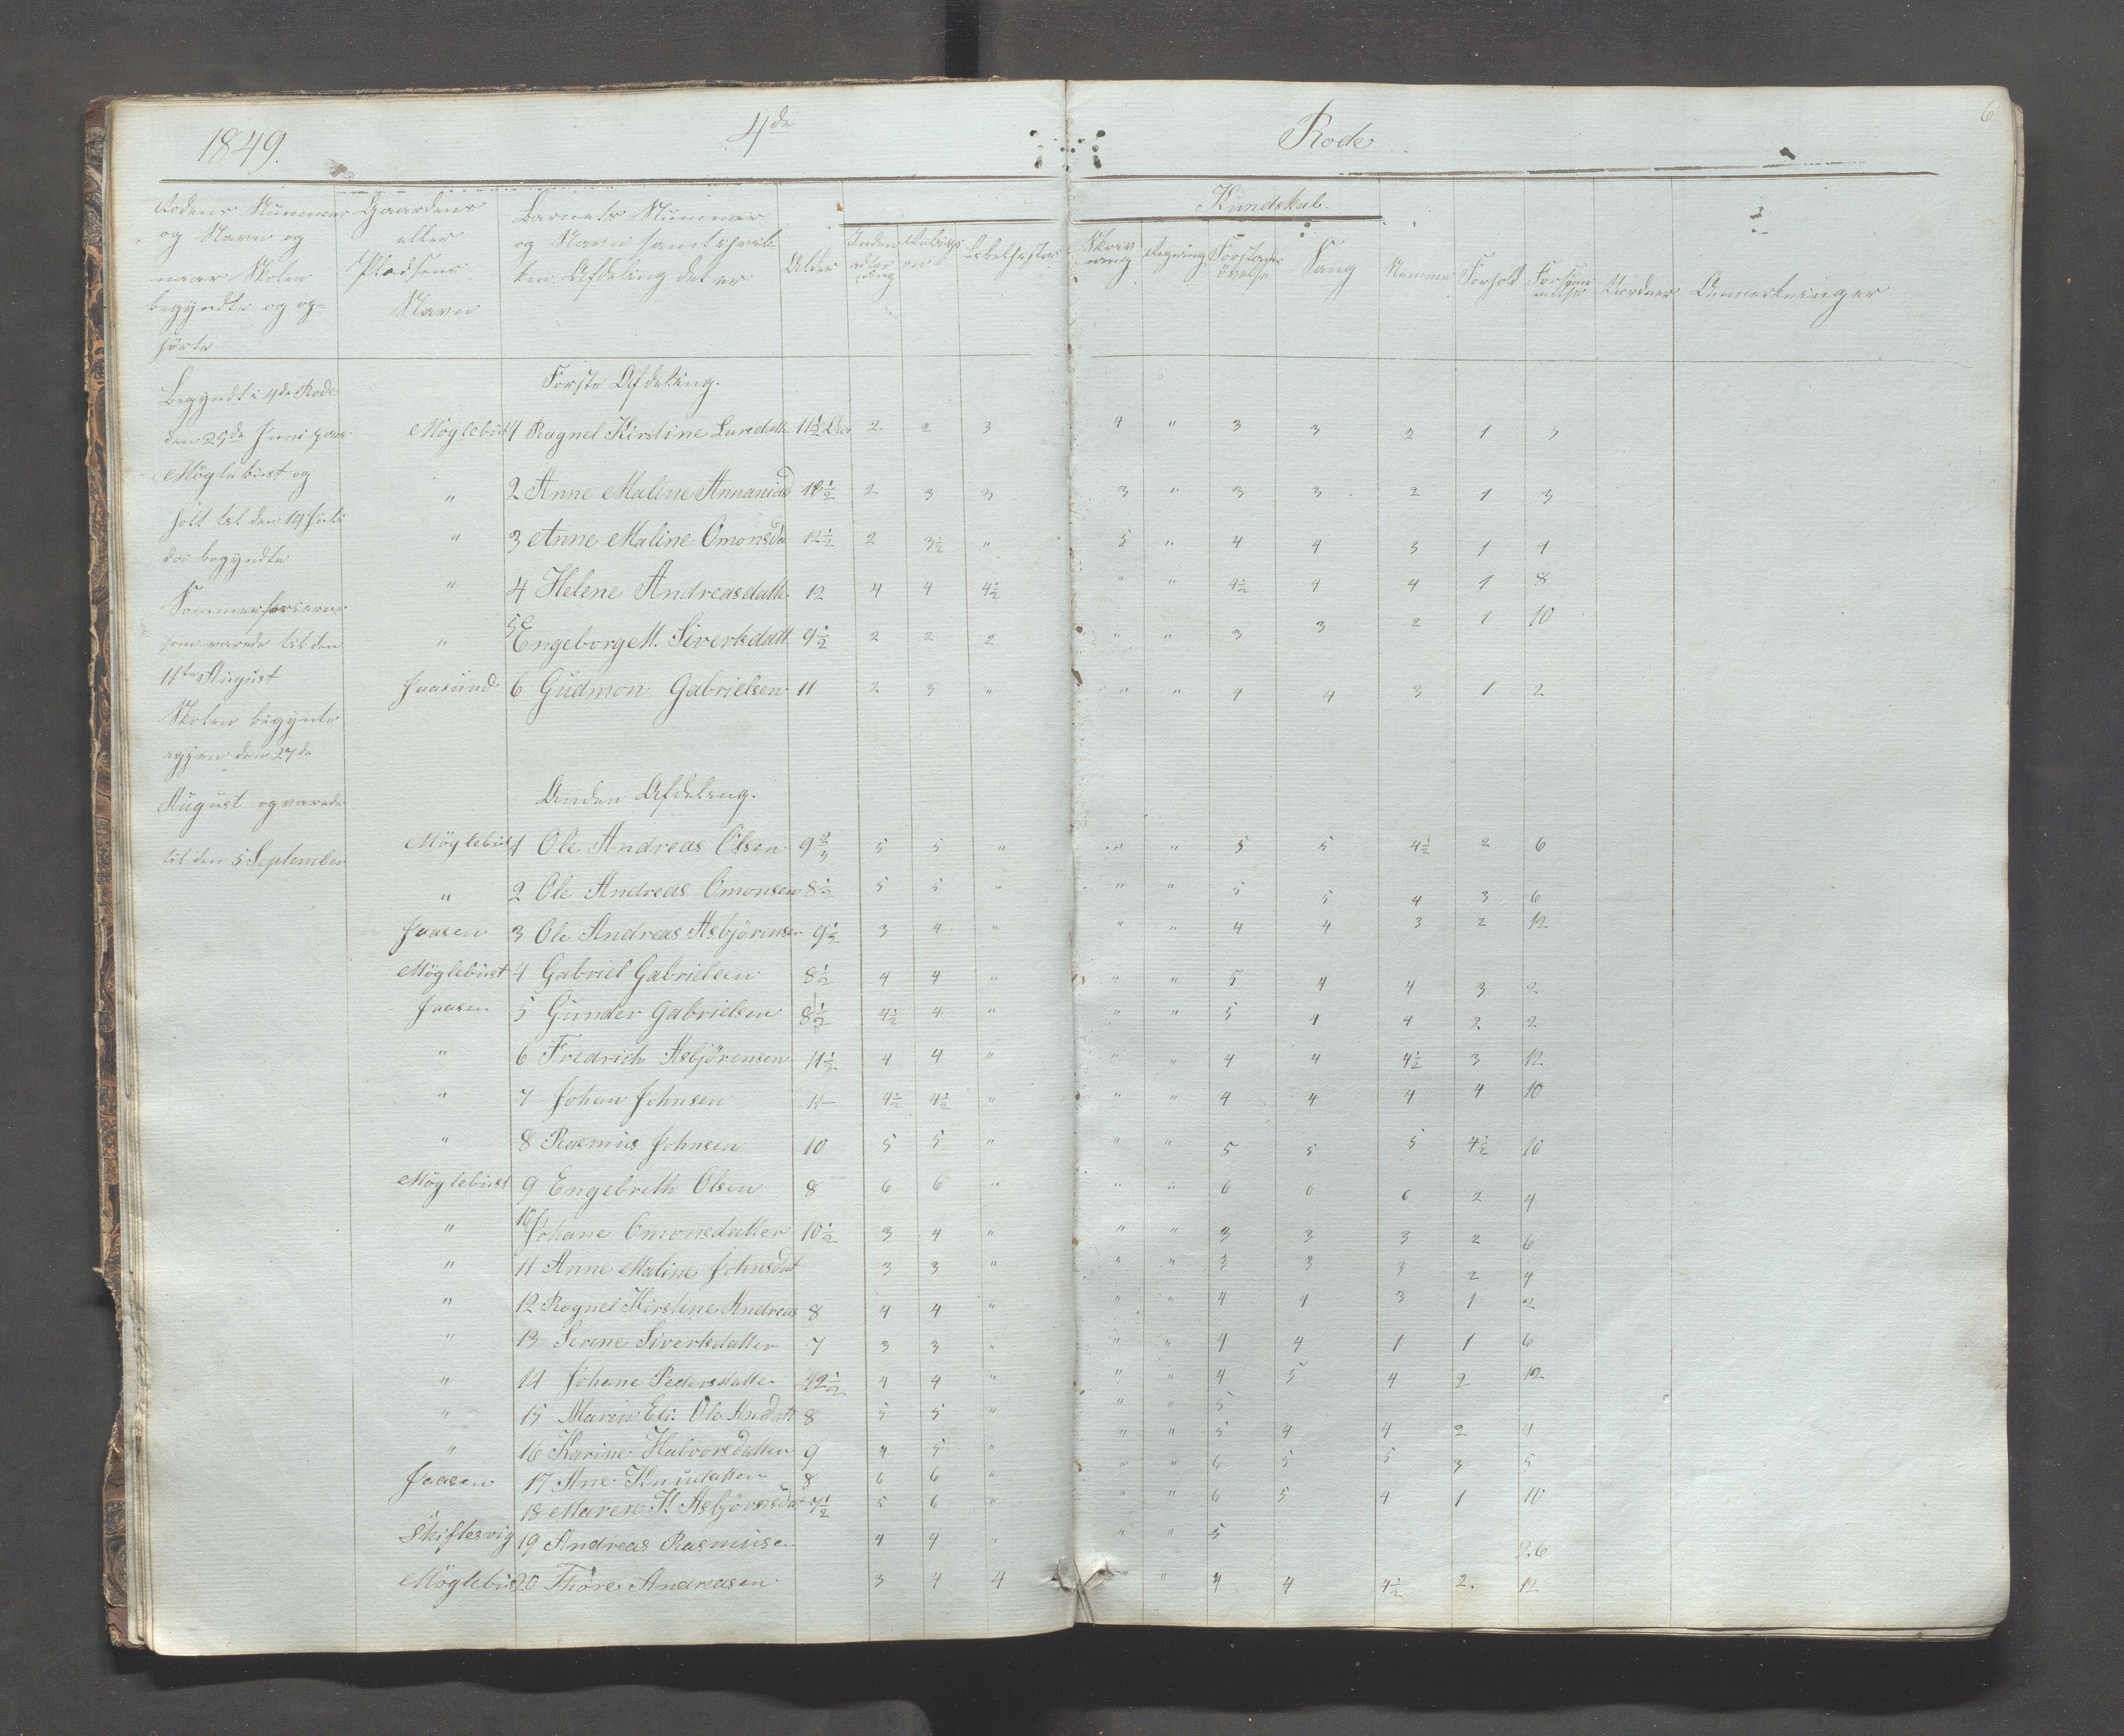 1849. 4de Rode 6
Rodens Nummer
og Navn og
naar Skolen
begyndte og op-
hörte
Gaardens
eller
Pladsens
Navn
Barnets Nummer
og Navn samt hvil
ken Afdeling det er
Alder
Kundskab.
Religi
on
Bibelhistor
Skriv
ning
Regning
Forstands
övelse
Sang
Nemme
Forhold
Forsöm
melse
Vordner
Anmerkninger
Begyndt i 4de Rode
den 25de Juni paa
Möglebust og
holt til den 14 Juli
da begyndte
Sommerferierne
som varede til den
11te August
Skolen begynte
igjen den 27de
August og varede
til den 5 September
Förste Afdeling.
Möglebust 1 Ragnel Kirstine Larsdatte 11½ Aar 2 2 3 4 " 3 3 2 1 3
" 2 Anne Maline Annanias 10½ 2 3 3 3 " 3 3 2 1 3
" 3 Anne Maline Omonsda 12½ 2 3½ " 5 " 4 4 3 1 4
" 4 Helene Andreasdatte 12 4 4 4½ " " 4½ 4 4 1 8
" 5 Engeborg M. Sivertsdatt 9½ 2 2 2 " " 3 3 2 1 10
Jaasund 6 Gudmon Gabrielsen 11 2 3 " " " 4 4 3 1 2
Anden Afdeling.
Möglebust 1 Ole Andreas Olsen 9 5 5 " " " 5 5 4½ 2 6
" 2 Ole Andreas Omonsen 8½ 5 5 " " " 5 5 4 3 6
Jaasen 3 Ole Andreas Asbjörensen 9½ 3 4 " " " 4 4 3 2 12
Möglebust 4 Gabriel Gabrielsen 8½ 4 4 " " " 5 4 4 3 2
Jaasen 5 Gunder Gabrielsen 8½ 4½ 4 " " " 5 4 4 2 2
" 6 Fredrich Asbjörensen 11½ 4 4 " " " 4 4 4½ 3 12
" 7 Johan Johnsen 11 4½ 4½ " " " 4 4 4 4 10
" 8 Rasmus Johnsen 10 5 5 " " " 5 5 5 4½ 10
Möglebust 9 Engebreth Olsen 8 6 6 " " " 6 6 6 2 4
" 10 Johane Omonsdatter 10½ 3 4 " " " 3 3 3 2 6
" 11 Anne Maline Johnsdat 3 3 " " " 3 3 3 2 4
" 12 Ragnel Kirstine Andreas 8 4 4 " " " 4 4 3 1 2
" 13 Serene Sivertsdatter 7 3 3 " " " 4 4 1 1 6
" 14 Johane Pedersdatte 12½ 4 4 " " " 4 5 4 2 12
" 15 Maren Eli. Ole Andatt 8 5 5 " " " 5
" 16 Karine Halvorsdatter 9 4 5 " " " 5 4 4 2 4
Jaasen 17 Ane Knudatter 8 6 6 " " " 6 5 5 3 5
18 Maren K. Asbjörnsdat 7½ 5 6 " " " 6 5 4 1 10
Skiftesvig 19 Andreas Rasmusen 4 4 " " " 5 2.6
Möglebust 20 Thore Andreasen 3 4 4 " " 4 4 4½ 2. 12